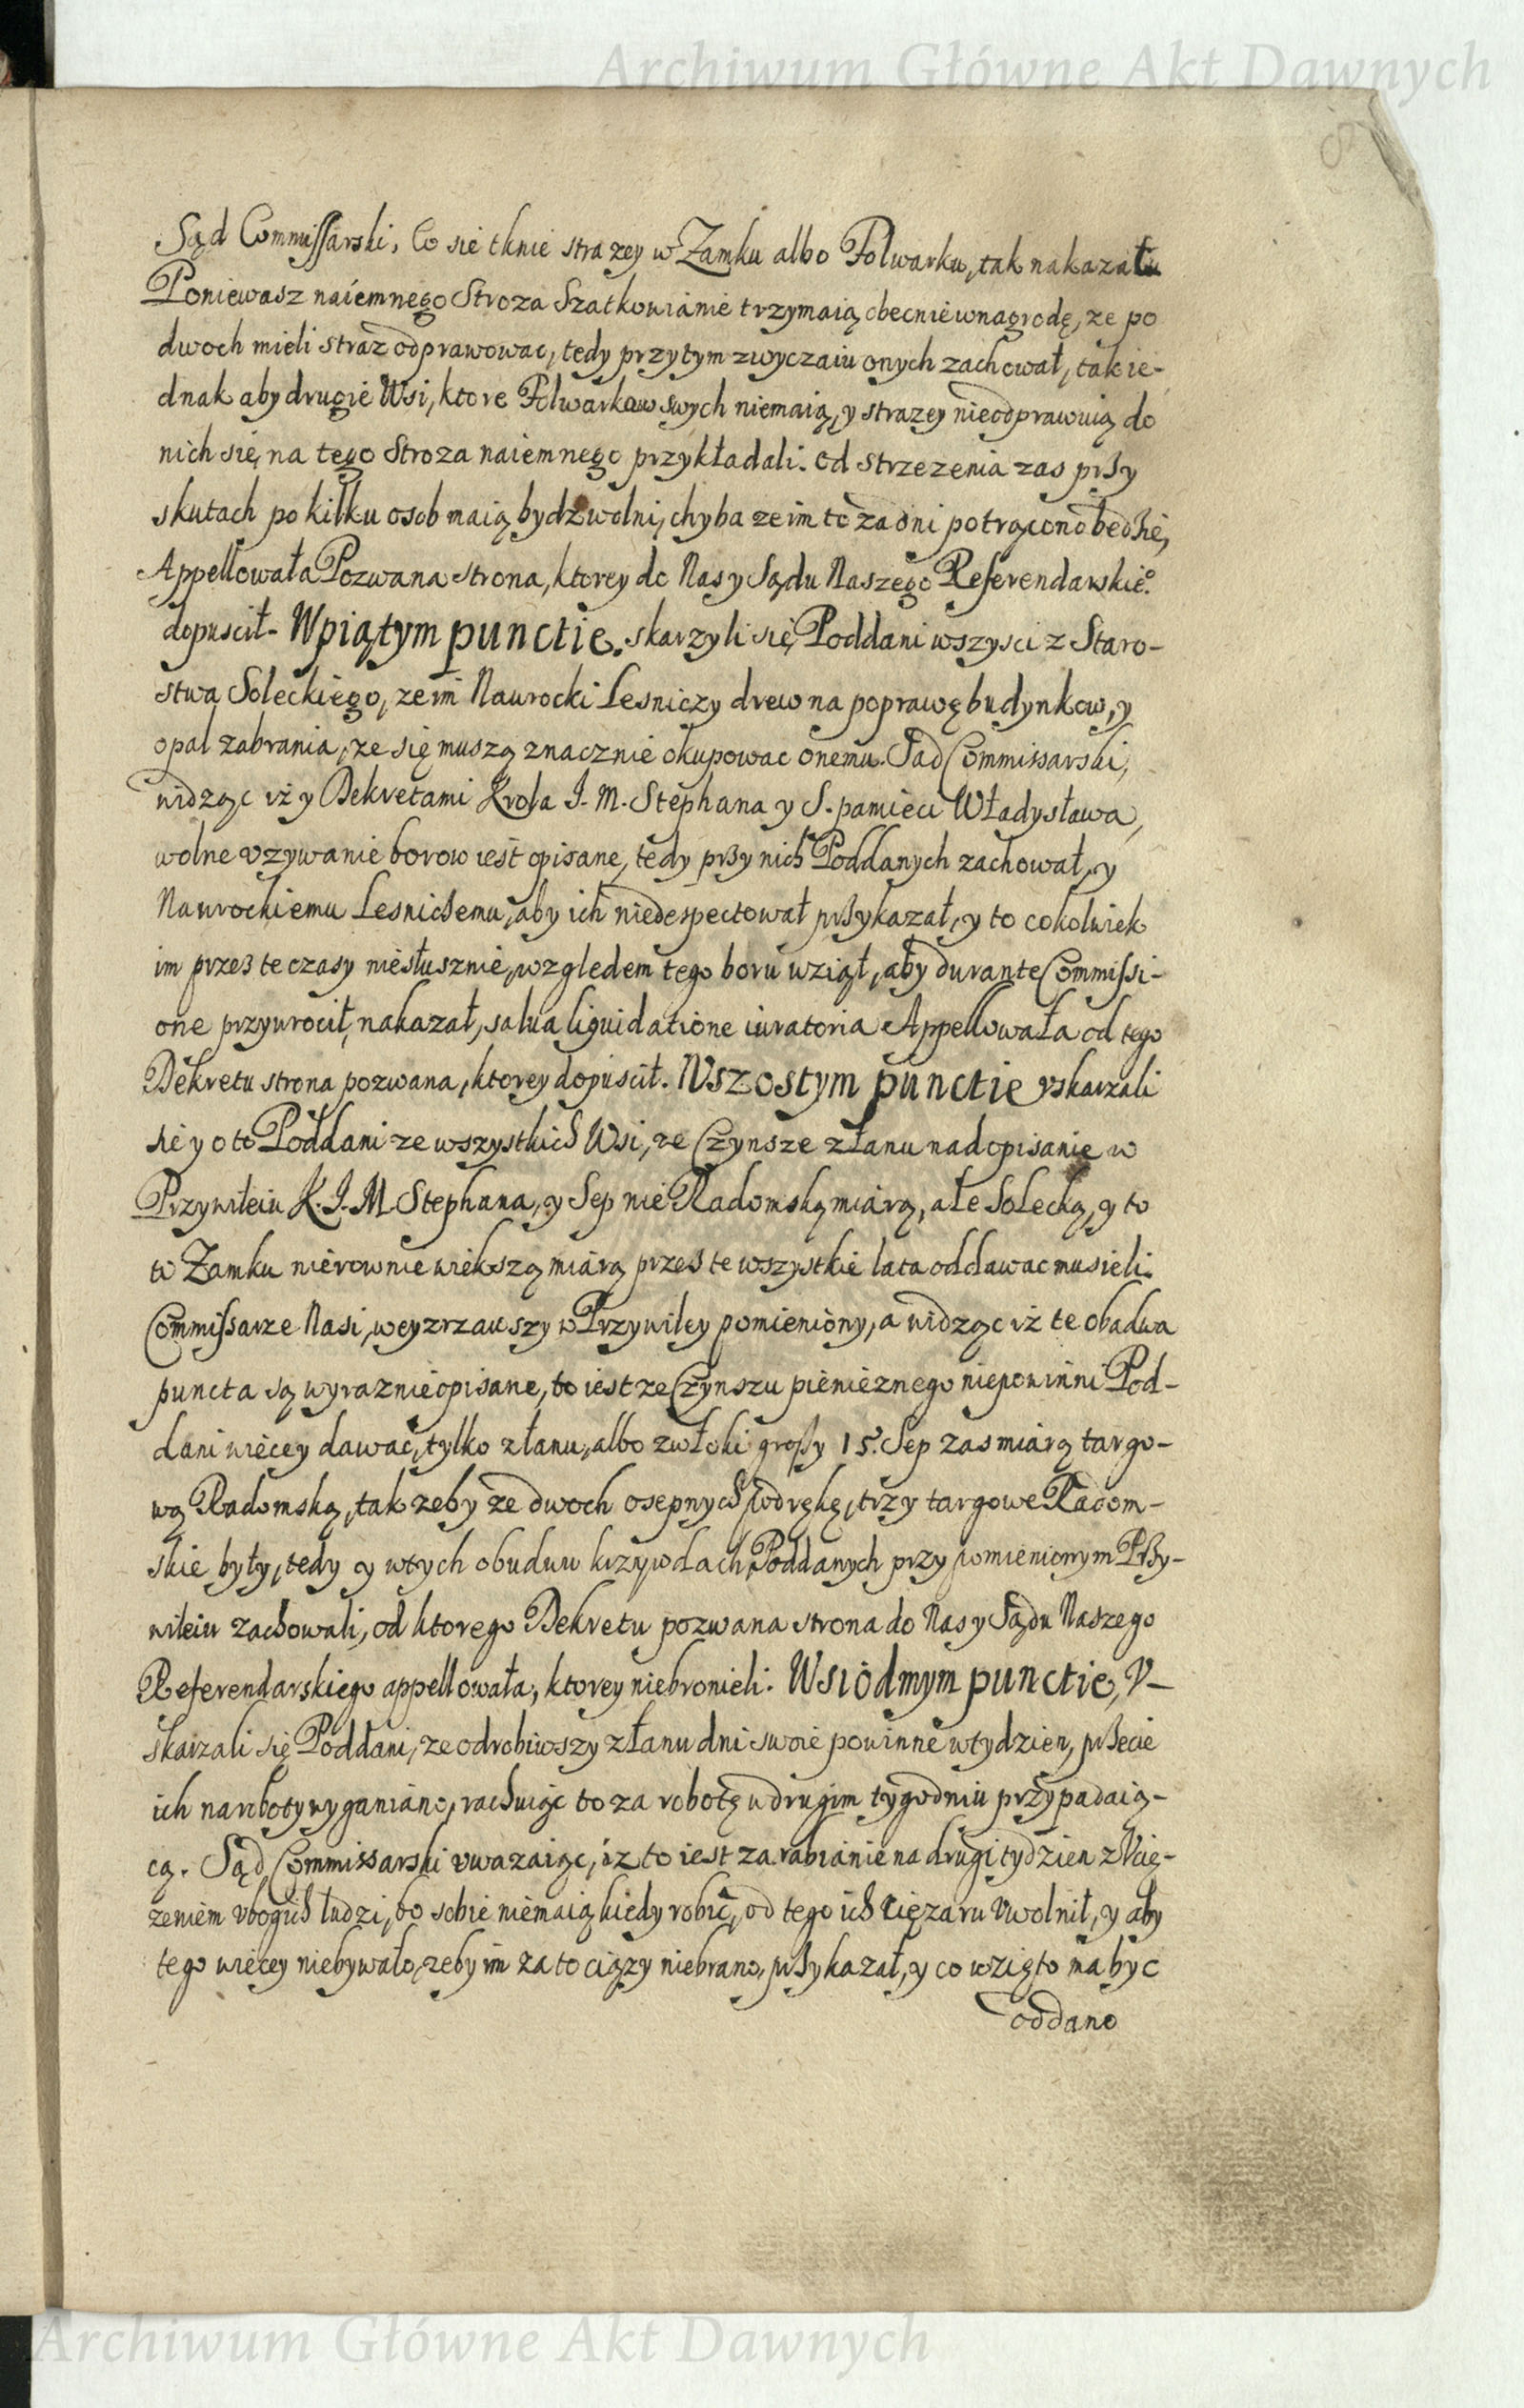 Archiwum Główne Akt Dawnych
8
Sąd Commissarski, Co się tknie strazey w Zamku albo Folwarku, tak nakazał
Poniewasz naiemnego Stroza Szatkowianie trzymaią obecnie w nagrodę, ze po
dwoch mieli straz odprawowac, tedy przy tym zwyczaiu onych zachował, tak ie-
dnak aby drugie Wsi, ktore Folwarkow swych niemaią, y strazey nieodprawuią do
nich się, na tego Stroza naiemnego przykładali. Od strzezenia zas przy
skutach po kilku osob maią bydz wolni, chyba ze im to za dni potrącono będzie,
Appellowała Pozwana strona, ktorey do Nas y Sądu Naszego Referendarskieº
dopuscił. W piątym punctie. skarzyli się Poddani wszysci z Staro-
stwa Soleckiego, ze im Nawrocki Lesniczy drew na poprawę budynkow, y
opał zabrania, ze się muszą znacznie okupowac onemu. Sąd Commissarski,
widząc iż y Dekretami Krola J. M. Stephana y S. pamięci Władysława,
wolne vzywanie borow iest opisane, tedy przy nich Poddanych zachował, y
Nawrockiemu Lesniczemu, aby ich niedespectował przykazał, y to cokolwiek
im przez te czasy niesłusznie, względem tego boru wziął, aby durante Commissi-
one przywrocił, nakazał, salua liquidatione iuratoria Appellowała od tego
Dekretu strona pozwana, ktorey dopuscił. W szostym punctie vskarzali
się y o to Poddani ze wszystkich Wsi, ze Czynsze z łanu nad opisanie w
Przywileiu K. J. M. Stephana, y Sep nie Radomską miarą, ale Solecką, y to
w Zamku nierownie większą miarą przez te wszystkie lata oddawac musieli.
Commissarze Nasi, weyzrzawszy w Przywiley pomieniony, a widząc iż te obadwa
puncta są wyraznie opisane, to iest ze Czynszu pienieznego niepowinni Pod-
dani więcey dawac, tylko z łanu, albo z włoki groszy 15. Sep zas miarą targo-
wą Radomską, tak zeby ze dwoch osepnych pod rękę, trzy targowe Radom-
skie były, tedy y w tych obudwu krzywdach Poddanych przy pomienionym Przy-
wileiu zachowali, od ktorego Dekretu pozwana strona do Nas y Sądu Naszego
Referendarskiego appellowała, ktorey niebronieli. W siodmym punctie, V-
skarzali się Poddani, ze odrobiwszy z łanu dni swoie powinne w tydzien, przecie
ich na roboty wyganiano, rachuiąc to za robotę w drugim tygodniu przypadaią-
cą. Sąd Commissarski vwazaiąc, iz to iest zarabianie na drugi tydzien z Vcię-
zeniem vbogich ludzi, bo sobie niemaią kiedy robić, od tego ich cięzaru Vwolnił, y aby
tego więcey niebywało, zeby im za to ciązy niebrano, przykazał, y co wzięto ma byc
oddano
Archiwum Główne Akt Dawnych